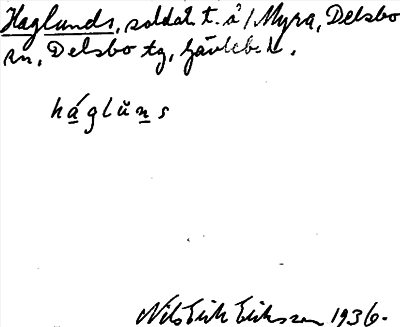 Haglunds, soldat t. å / Myra, Delsbo
sn, Delsbo tg, Gävleb. l.
háglŭns
Nils Erik Eriksson 1936.